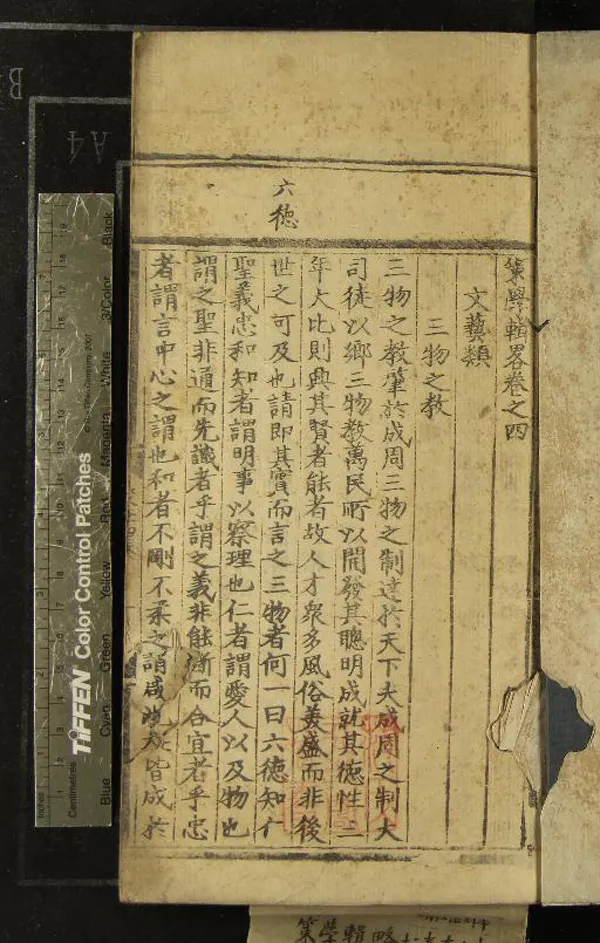 策學輯畧卷之四
文藝類
三物之教
三物之教肇於成周三物之制達於天下夫成周之制大
司徒以鄉三物教萬民所以開發其聰明成就其德性三
年大比則興其賢者能者故人才衆多風俗美盛而非後
世之可及也請即其實而言之三物者何一曰六德知仁
聖義忠和知者謂明事以察理也仁者謂愛人以及物也
謂之聖非通而先識者乎謂之義非能斷而合宜者乎忠
者謂言中心之謂也和者不剛不柔之謂 皆成於
六德
策學輯略
Inches
Centimetres
TIFFEN Color Control Patches
Blue
Cyan
Green
Yellow
Red
Magenta
White
3/Color
Black
A4
B